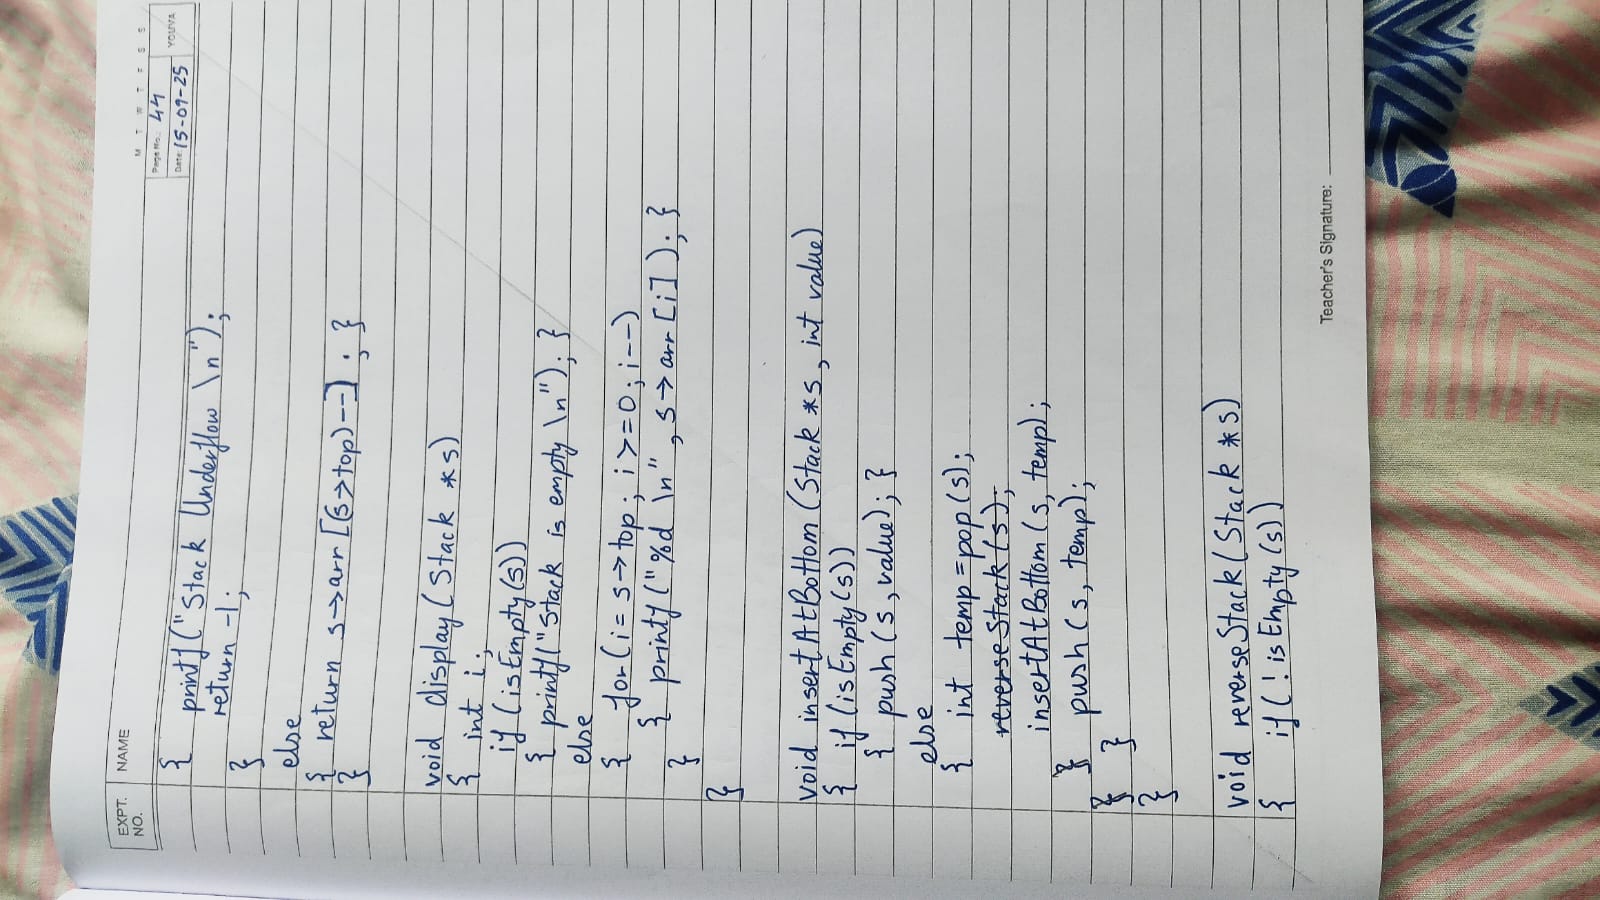 EXPT. NO.
NAME
M T W T F S S
Page No.: 44
Date: 15-09-25
YOUVA
{ printf("Stack Underflow \n");
return -1;
}
else
{ return s→arr[(s→top)--] ; }
}
void display(Stack *s)
{ int i;
if (isEmpty(s))
{ printf("Stack is empty \n"); }
else
{ for(i= s→top; i>=0; i--)
{ printf("%d \n", s→arr[i]); }
}
}
void insertAtBottom (Stack *s, int value)
{ if (isEmpty(s))
{ push (s, value); }
else
{ int temp = pop(s);
reverseStack(s);
insertAtBottom (s, temp);
} push (s, temp);
} }
}
void reverseStack(Stack *s)
{ if (! isEmpty(s))
Teacher's Signature: